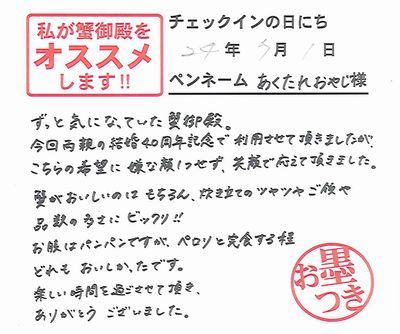 私が蟹御殿を
オススメ
します!!
チェックインの日にち
24年5月1日
ペンネーム あくたれおやじ様
ずっと気になっていた蟹御殿。
今回両親の結婚40周年記念で利用させて頂きましたが、
こちらの希望に嫌な顔1つせず、笑顔で応えて頂きました。
蟹がおいしいのはもちろん、炊き立てのツヤツヤご飯や
品数の多さにビックリ!!
お腹はパンパンですが、ペロリと完食する程
どれもおいしかったです。
楽しい時間を過ごさせて頂き、
ありがとうございました。
お墨つき